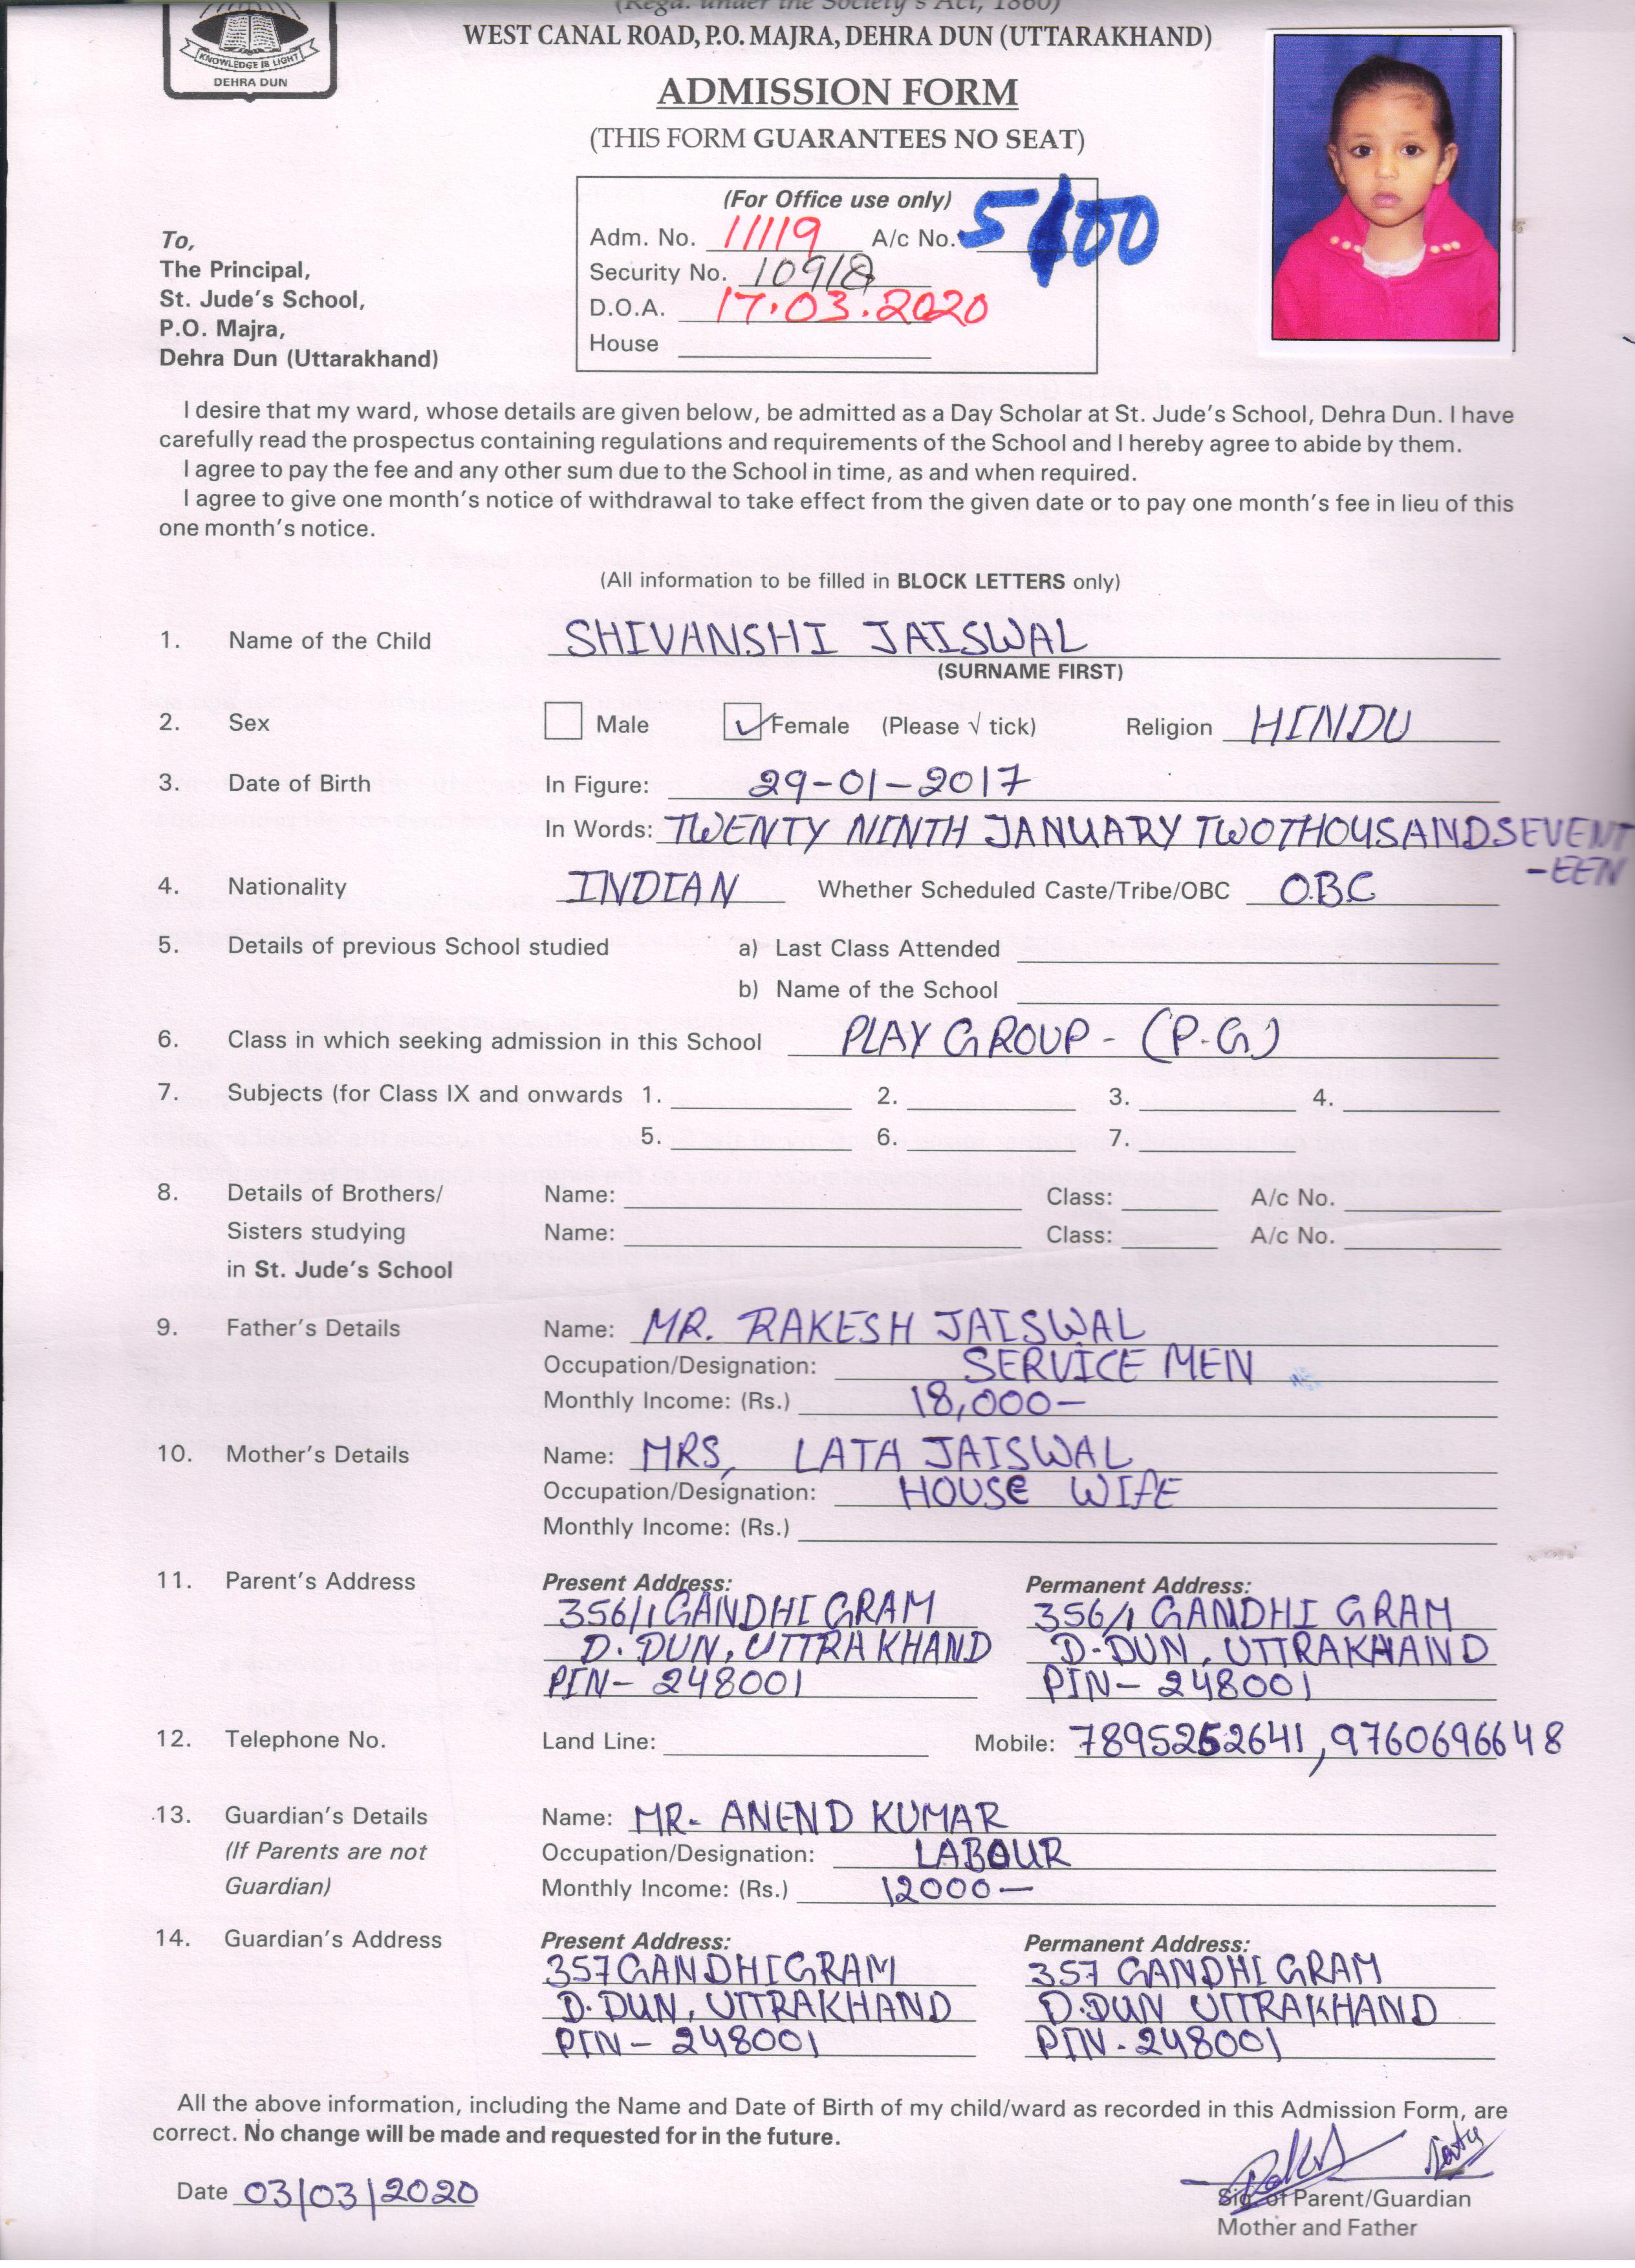 (Regd. under the Society's Act, 1860)
WEST CANAL ROAD, P.O. MAJRA, DEHRA DUN (UTTARAKHAND)
KNOWLEDGE IS LIGHT
DEHRA DUN
ADMISSION FORM
(THIS FORM GUARANTEES NO SEAT)
(For Office use only)
Adm. No. 11119 A/c No.
Security No.
D.O.A. 17.03.2020
House
To,
The Principal,
St. Jude's School,
P.O. Majra,
Dehra Dun (Uttarakhand)
I desire that my ward, whose details are given below, be admitted as a Day Scholar at St. Jude's School, Dehra Dun. I have
carefully read the prospectus containing regulations and requirements of the School and I hereby agree to abide by them.
I agree to pay the fee and any other sum due to the School in time, as and when required.
I agree to give one month's notice of withdrawal to take effect from the given date or to pay one month's fee in lieu of this
one month's notice.
(All information to be filled in BLOCK LETTERS only)
1. Name of the Child SHIVANSHI JAISWAL
(SURNAME FIRST)
2. Sex Male ✓ Female (Please √ tick) Religion HINDU
3. Date of Birth In Figure: 29-01-2017
In Words: TWENTY NINTH JANUARY TWOTHOUSANDSEVENT
-EEN
4. Nationality INDIAN Whether Scheduled Caste/Tribe/OBC O.B.C
5. Details of previous School studied a) Last Class Attended
b) Name of the School
6. Class in which seeking admission in this School PLAY GROUP - (P.G)
7. Subjects (for Class IX and onwards 1. 2. 3. 4.
5. 6. 7.
8. Details of Brothers/ Name: Class: A/c No.
Sisters studying Name: Class: A/c No.
in St. Jude's School
9. Father's Details Name: MR. RAKESH JAISWAL
Occupation/Designation: SERVICE MEN
Monthly Income: (Rs.) 18,000-
10. Mother's Details Name: MRS, LATA JAISWAL
Occupation/Designation: HOUSE WIFE
Monthly Income: (Rs.)
11. Parent's Address Present Address: Permanent Address:
356/1 GANDHI GRAM 356/1 GANDHI GRAM
D. DUN, UTTRAKHAND D-DUN, UTTRAKHAND
PIN- 248001 PIN- 248001
12. Telephone No. Land Line: Mobile: 7895252641, 9760696648
13. Guardian's Details Name: MR- ANEND KUMAR
(If Parents are not Occupation/Designation: LABOUR
Guardian) Monthly Income: (Rs.) 12000-
14. Guardian's Address Present Address: Permanent Address:
357 GANDHI GRAM 357 GANDHI GRAM
D. DUN, UTTRAKHAND D.DUN UTTRAKHAND
PIN- 248001 PIN-248001
All the above information, including the Name and Date of Birth of my child/ward as recorded in this Admission Form, are
correct. No change will be made and requested for in the future.
Date 03/03/2020
Sig. of Parent/Guardian
Mother and Father